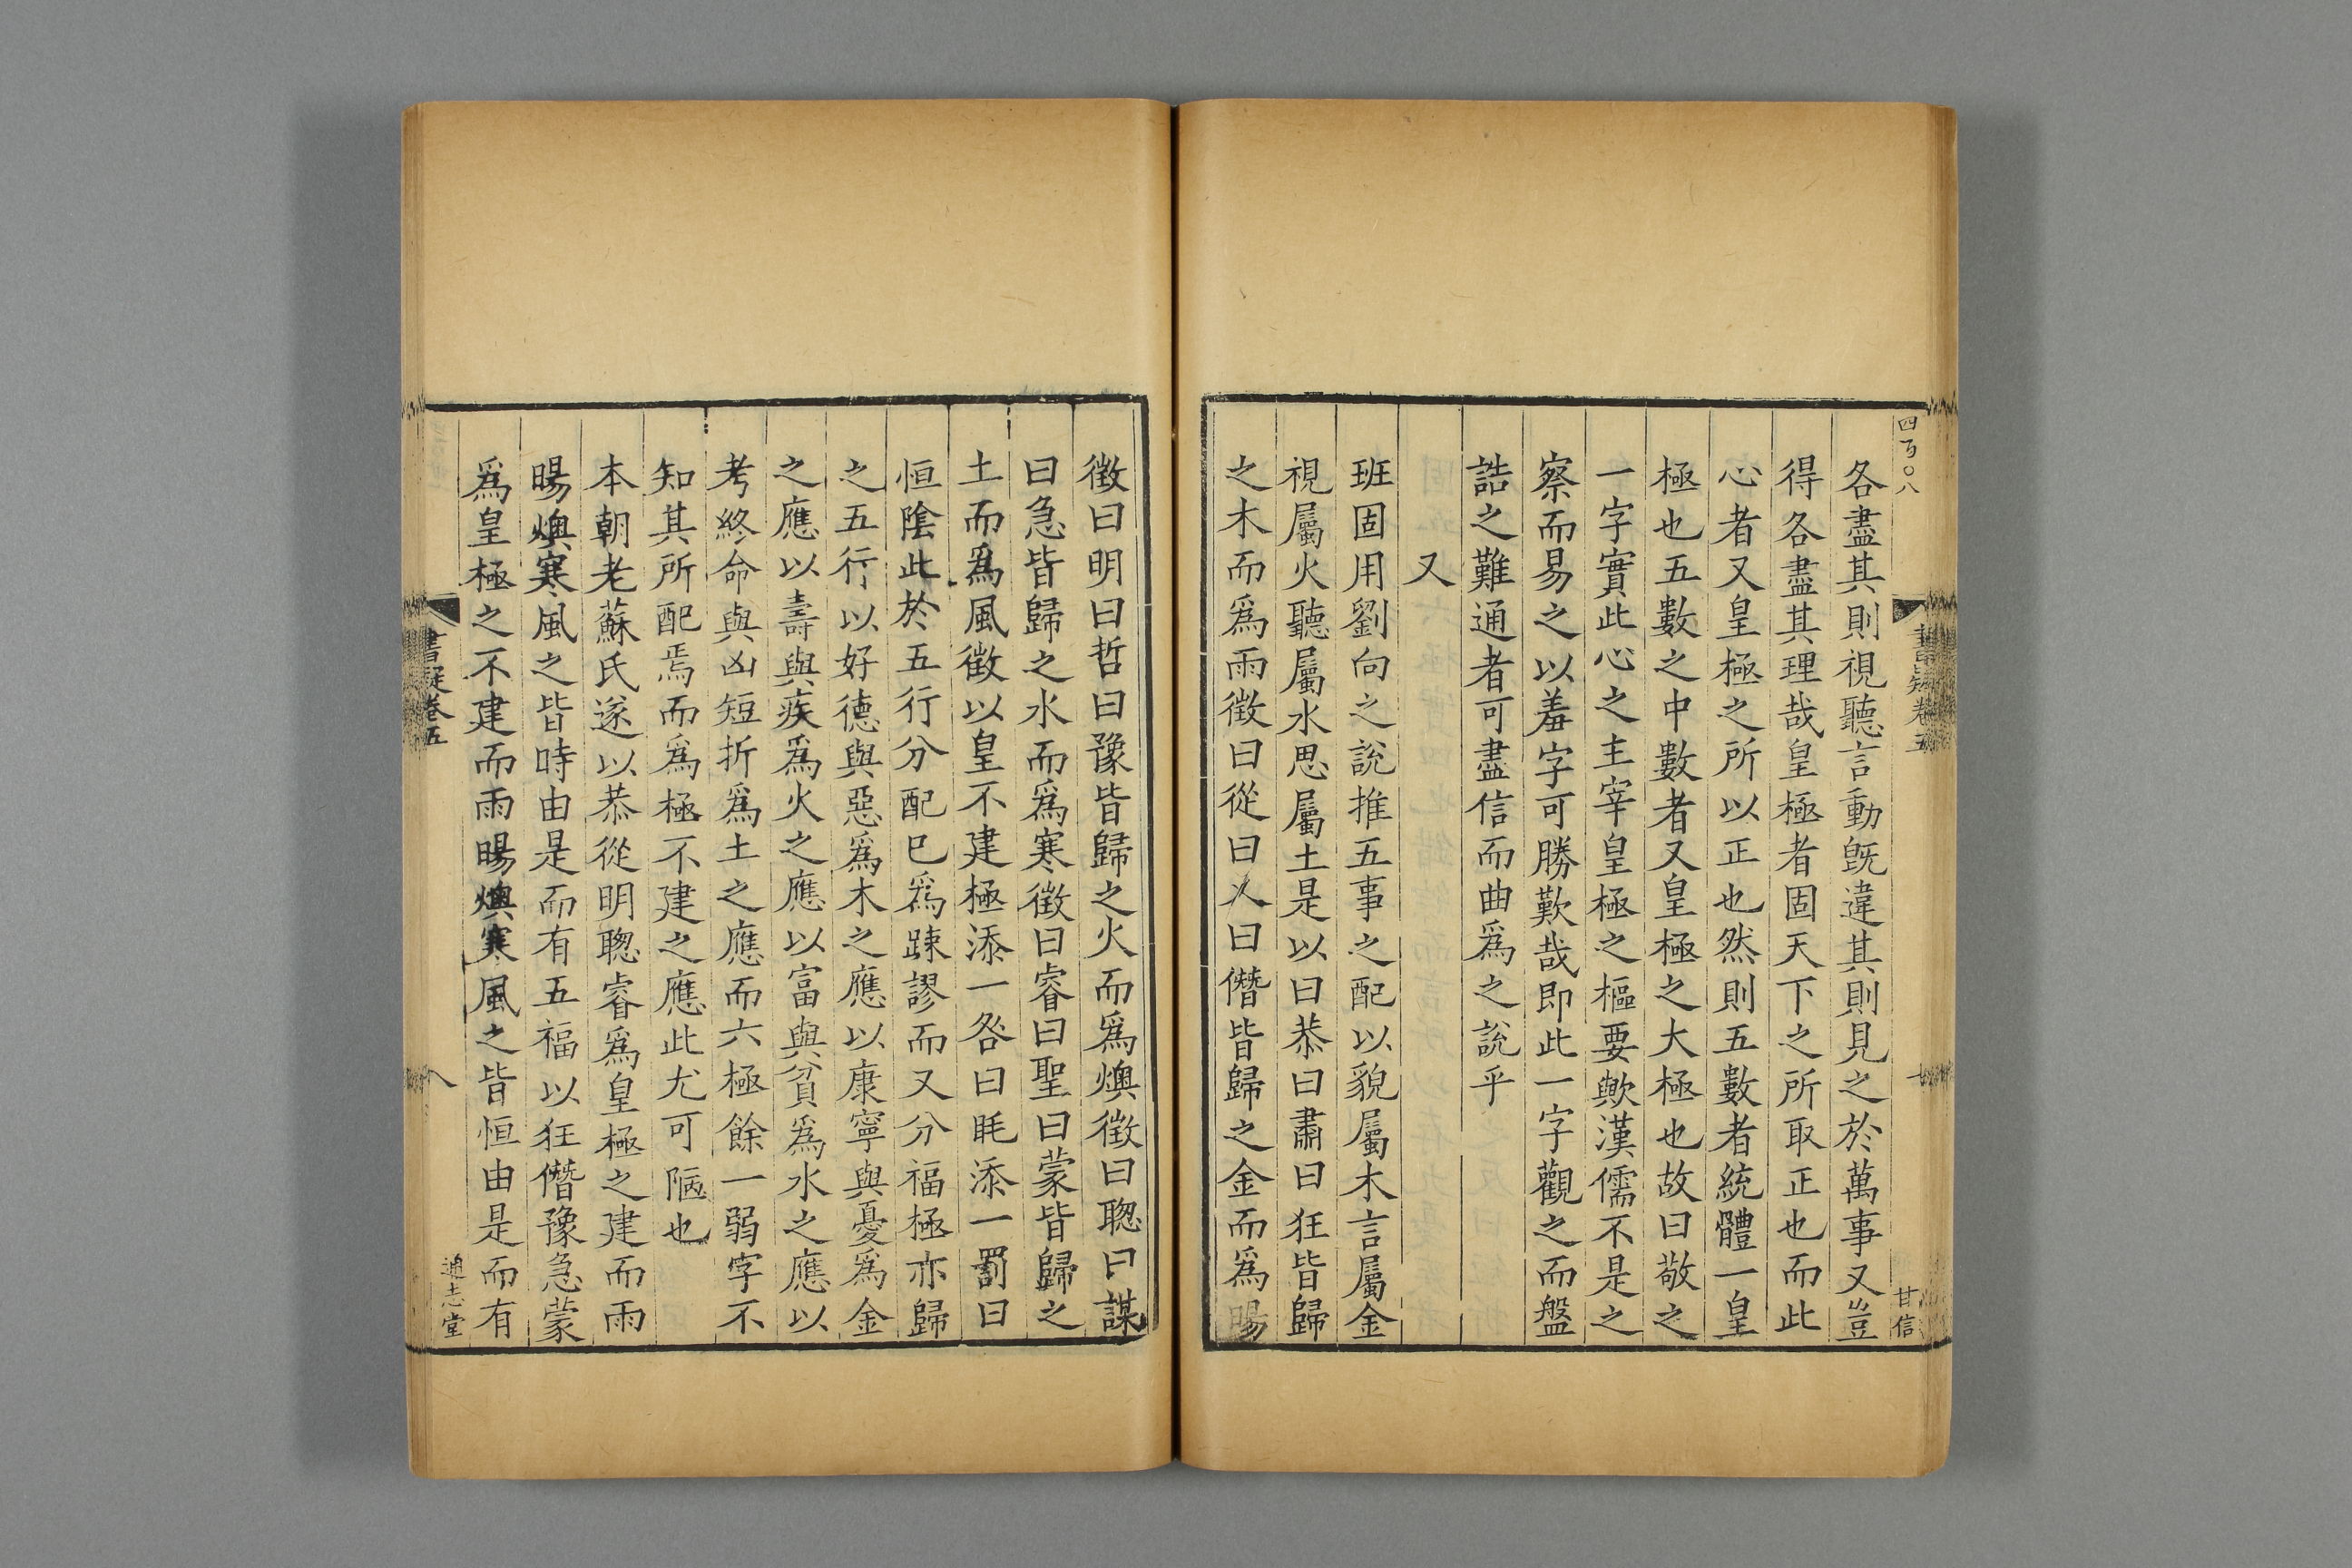 四百〇八
書疑卷五
甘信
各盡其則視聽言動旣違其則見之於萬事又豈
得各盡其理哉皇極者固天下之所取正也而此
心者又皇極之所以正也然則五數者統體一皇
極也五數之中數者又皇極之大極也故曰敬之
一字實此心之主宰皇極之樞要歟漢儒不是之
察而易之以羞字可勝歎哉即此一字觀之而盤
誥之難通者可盡信而曲爲之說乎
又
班固用劉向之說推五事之配以貌屬木言屬金
視屬火聽屬水思屬土是以曰恭曰肅曰狂皆歸
之木而爲雨徵曰從曰乂曰僭皆歸之金而爲暘
徵曰明曰哲曰豫皆歸之火而爲燠徵曰聰曰謀
曰急皆歸之水而爲寒徵曰睿曰聖曰蒙皆歸之
土而爲風徵以皇不建極添一咎曰眊添一罰曰
恒陰此於五行分配已爲踈謬而又分福極亦歸
之五行以好德與惡爲木之應以康寧與憂爲金
之應以壽與疾爲火之應以富與貧爲水之應以
考終命與凶短折爲土之應而六極餘一弱字不
知其所配焉而爲極不建之應此尤可陋也
本朝老蘇氏遂以恭從明聰睿爲皇極之建而雨
暘燠寒風之皆時由是而有五福以狂僭豫急蒙
爲皇極之不建而雨暘燠寒風之皆恒由是而有
書疑卷五
八
通志堂